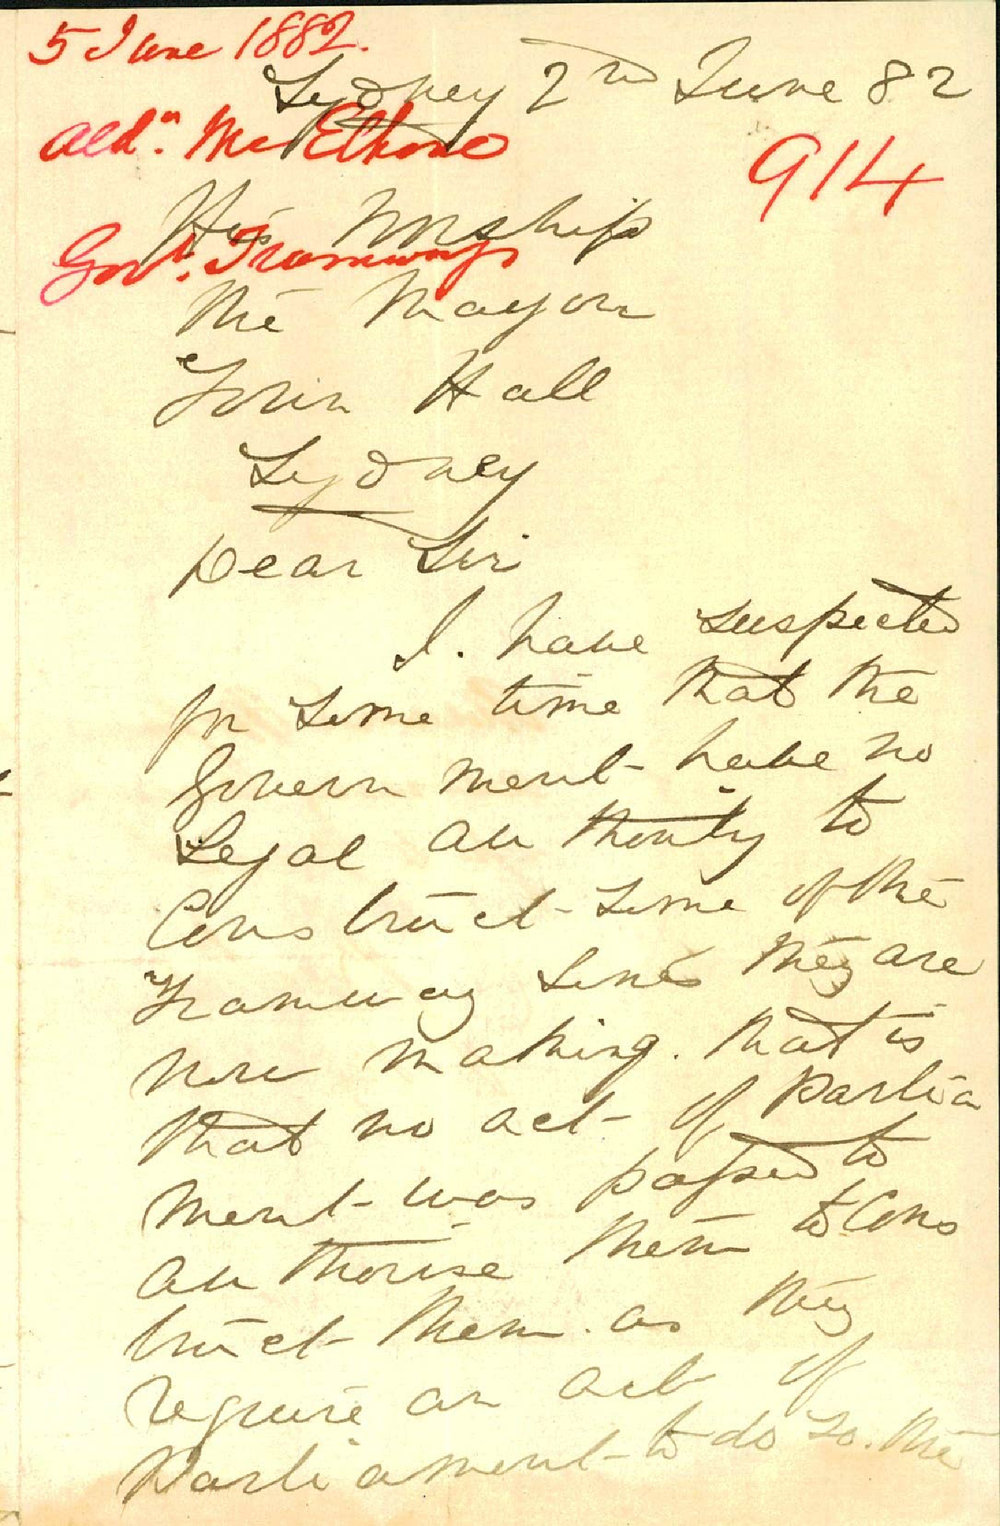 5 June 1882.
Sydney 2nd June 82
Aldn. McElhone
914
His Worship
Govt. Tramways
The Mayor
Town Hall
Sydney
Dear Sir
I. have suspected
for some time that the
Government have no
Legal authority to
Construct some of the
Tramway Lines they are
now making. that is
that no act of Parlia
ment was passed to
authorise them to Cons
truct them. as they
require an act of
Parliament to do so. the